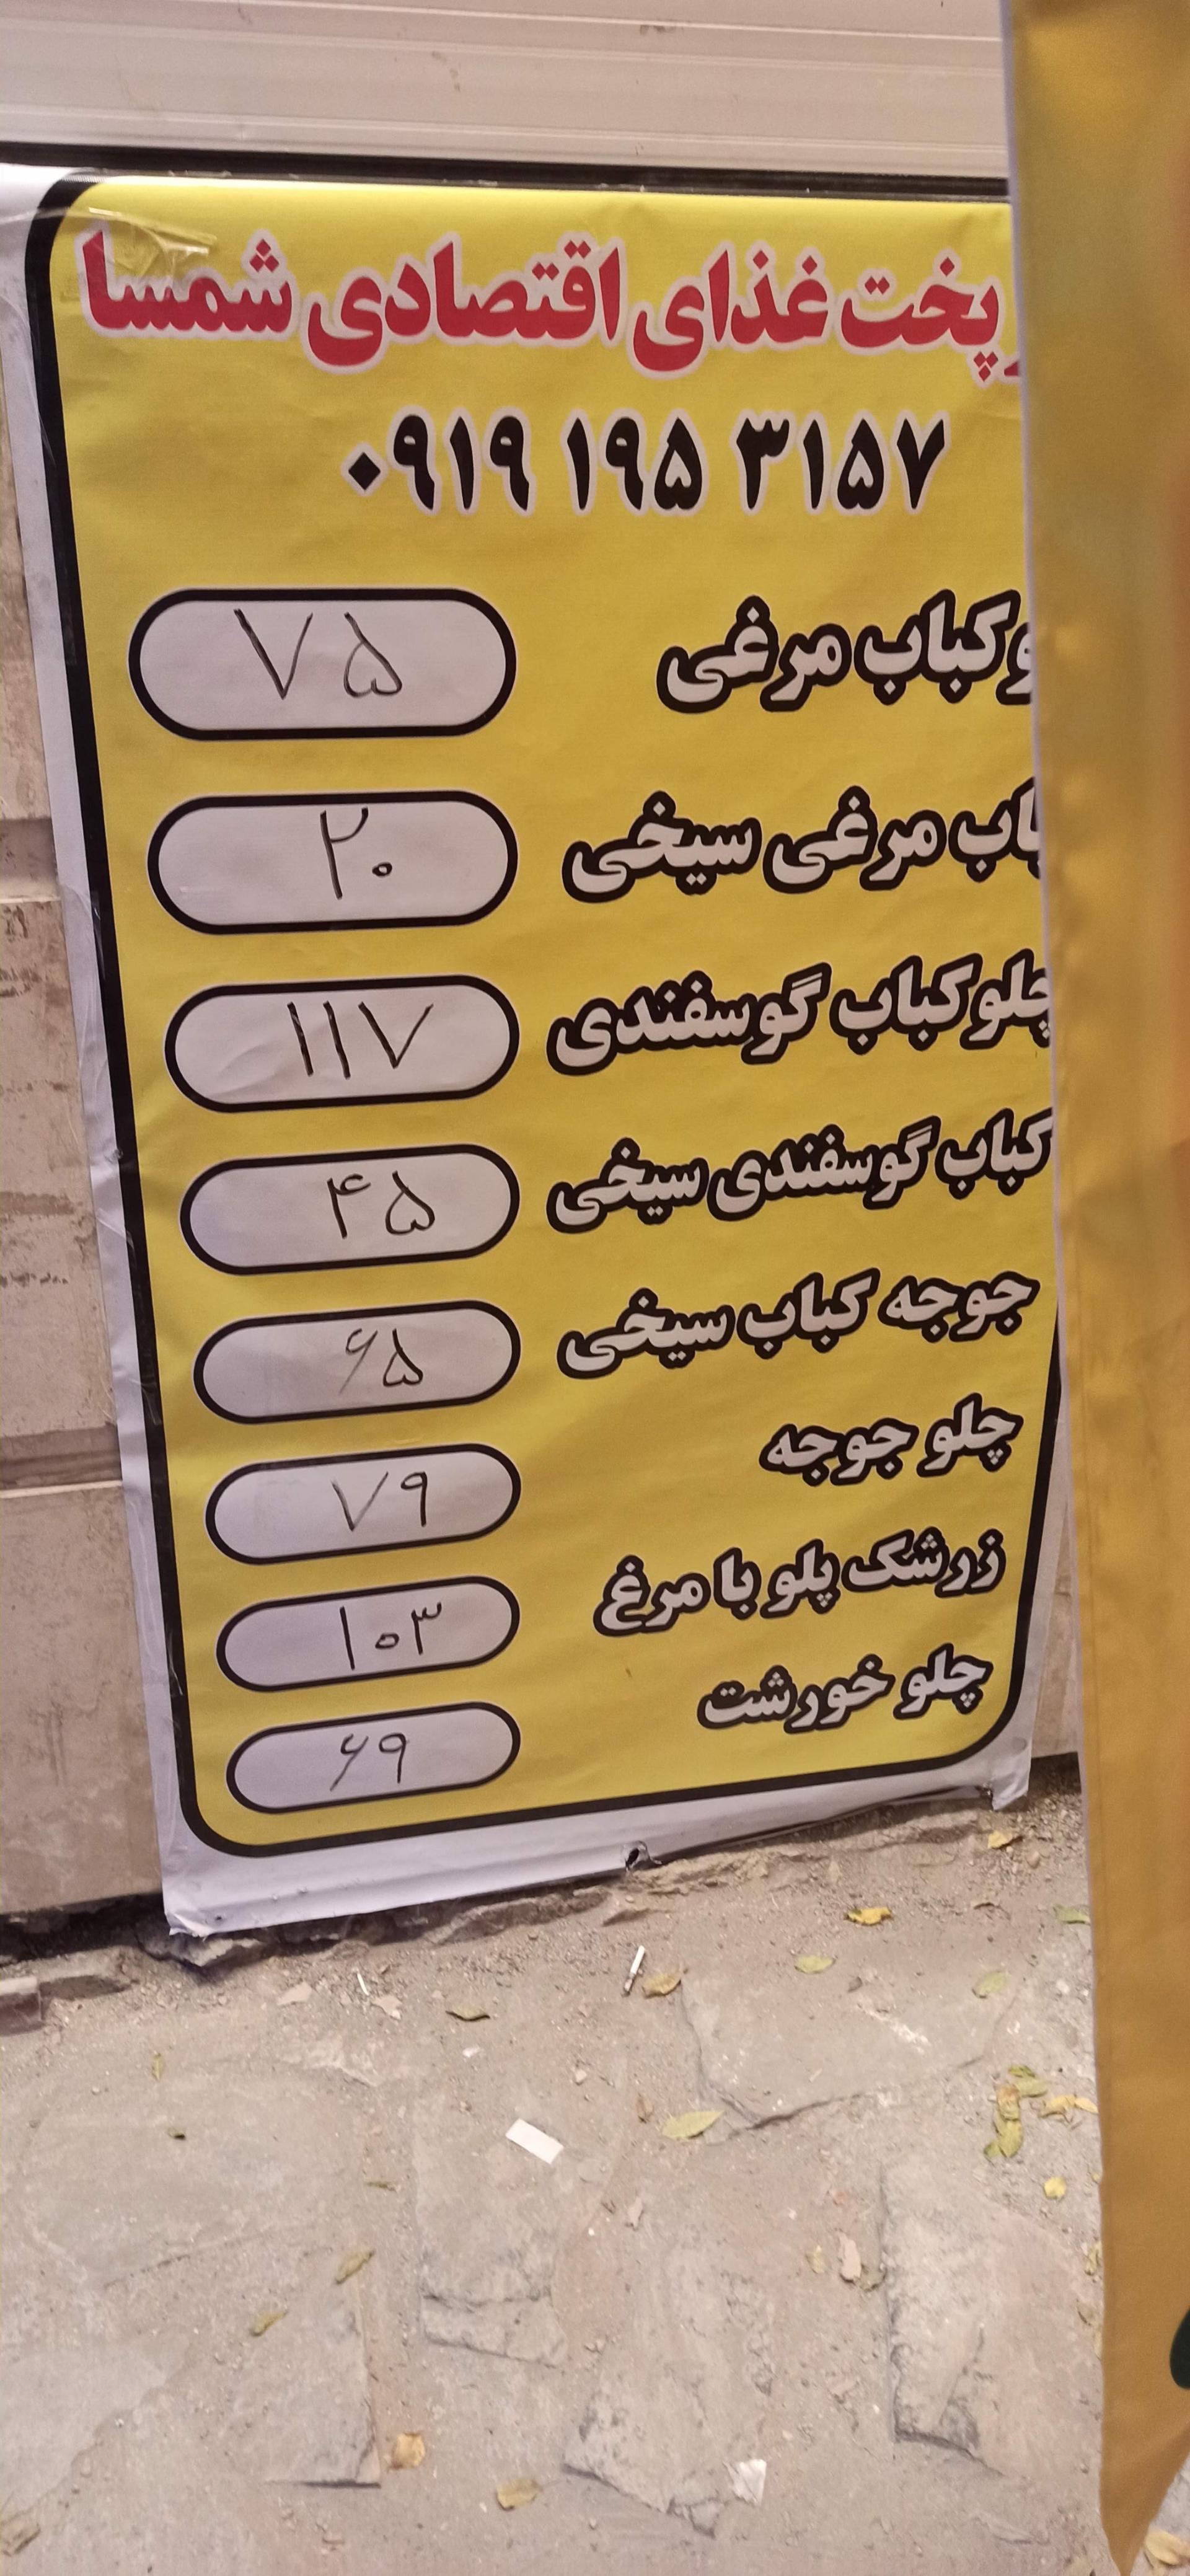 پخت غذای اقتصادی شمسا
۰۹۱۹ ۱۹۵ ۳۱۵۷
وکباب مرغی ۷۵
مرغی سیخی ۲۰
چلوکباب گوسفندی ۱۱۷
کباب گوسفندی سیخی ۴۵
جوجه کباب سیخی ۶۵
چلو جوجه ۷۹
زرشک پلو با مرغ ۱۰۳
چلو خورشت ۶۹